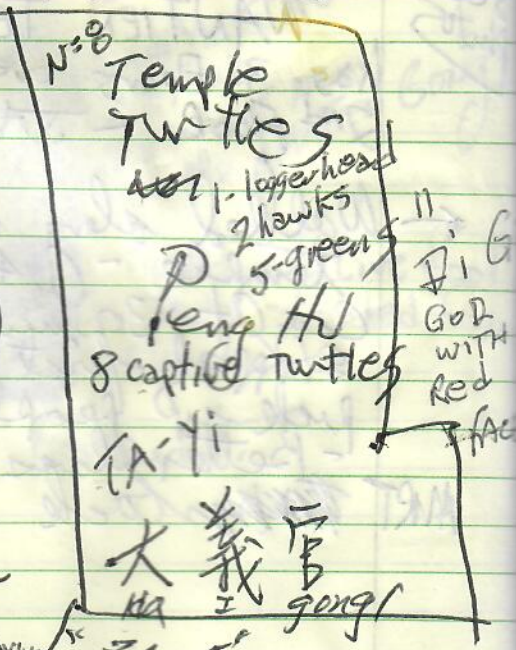 N=8
Temple
Turtles
1-loggerhead
2 hawks
5-greens
Peng HU
8 captive Turtles
TA-Yi
大義官
gong
"
Di G
GOD
WITH
Red
FAC
MRT